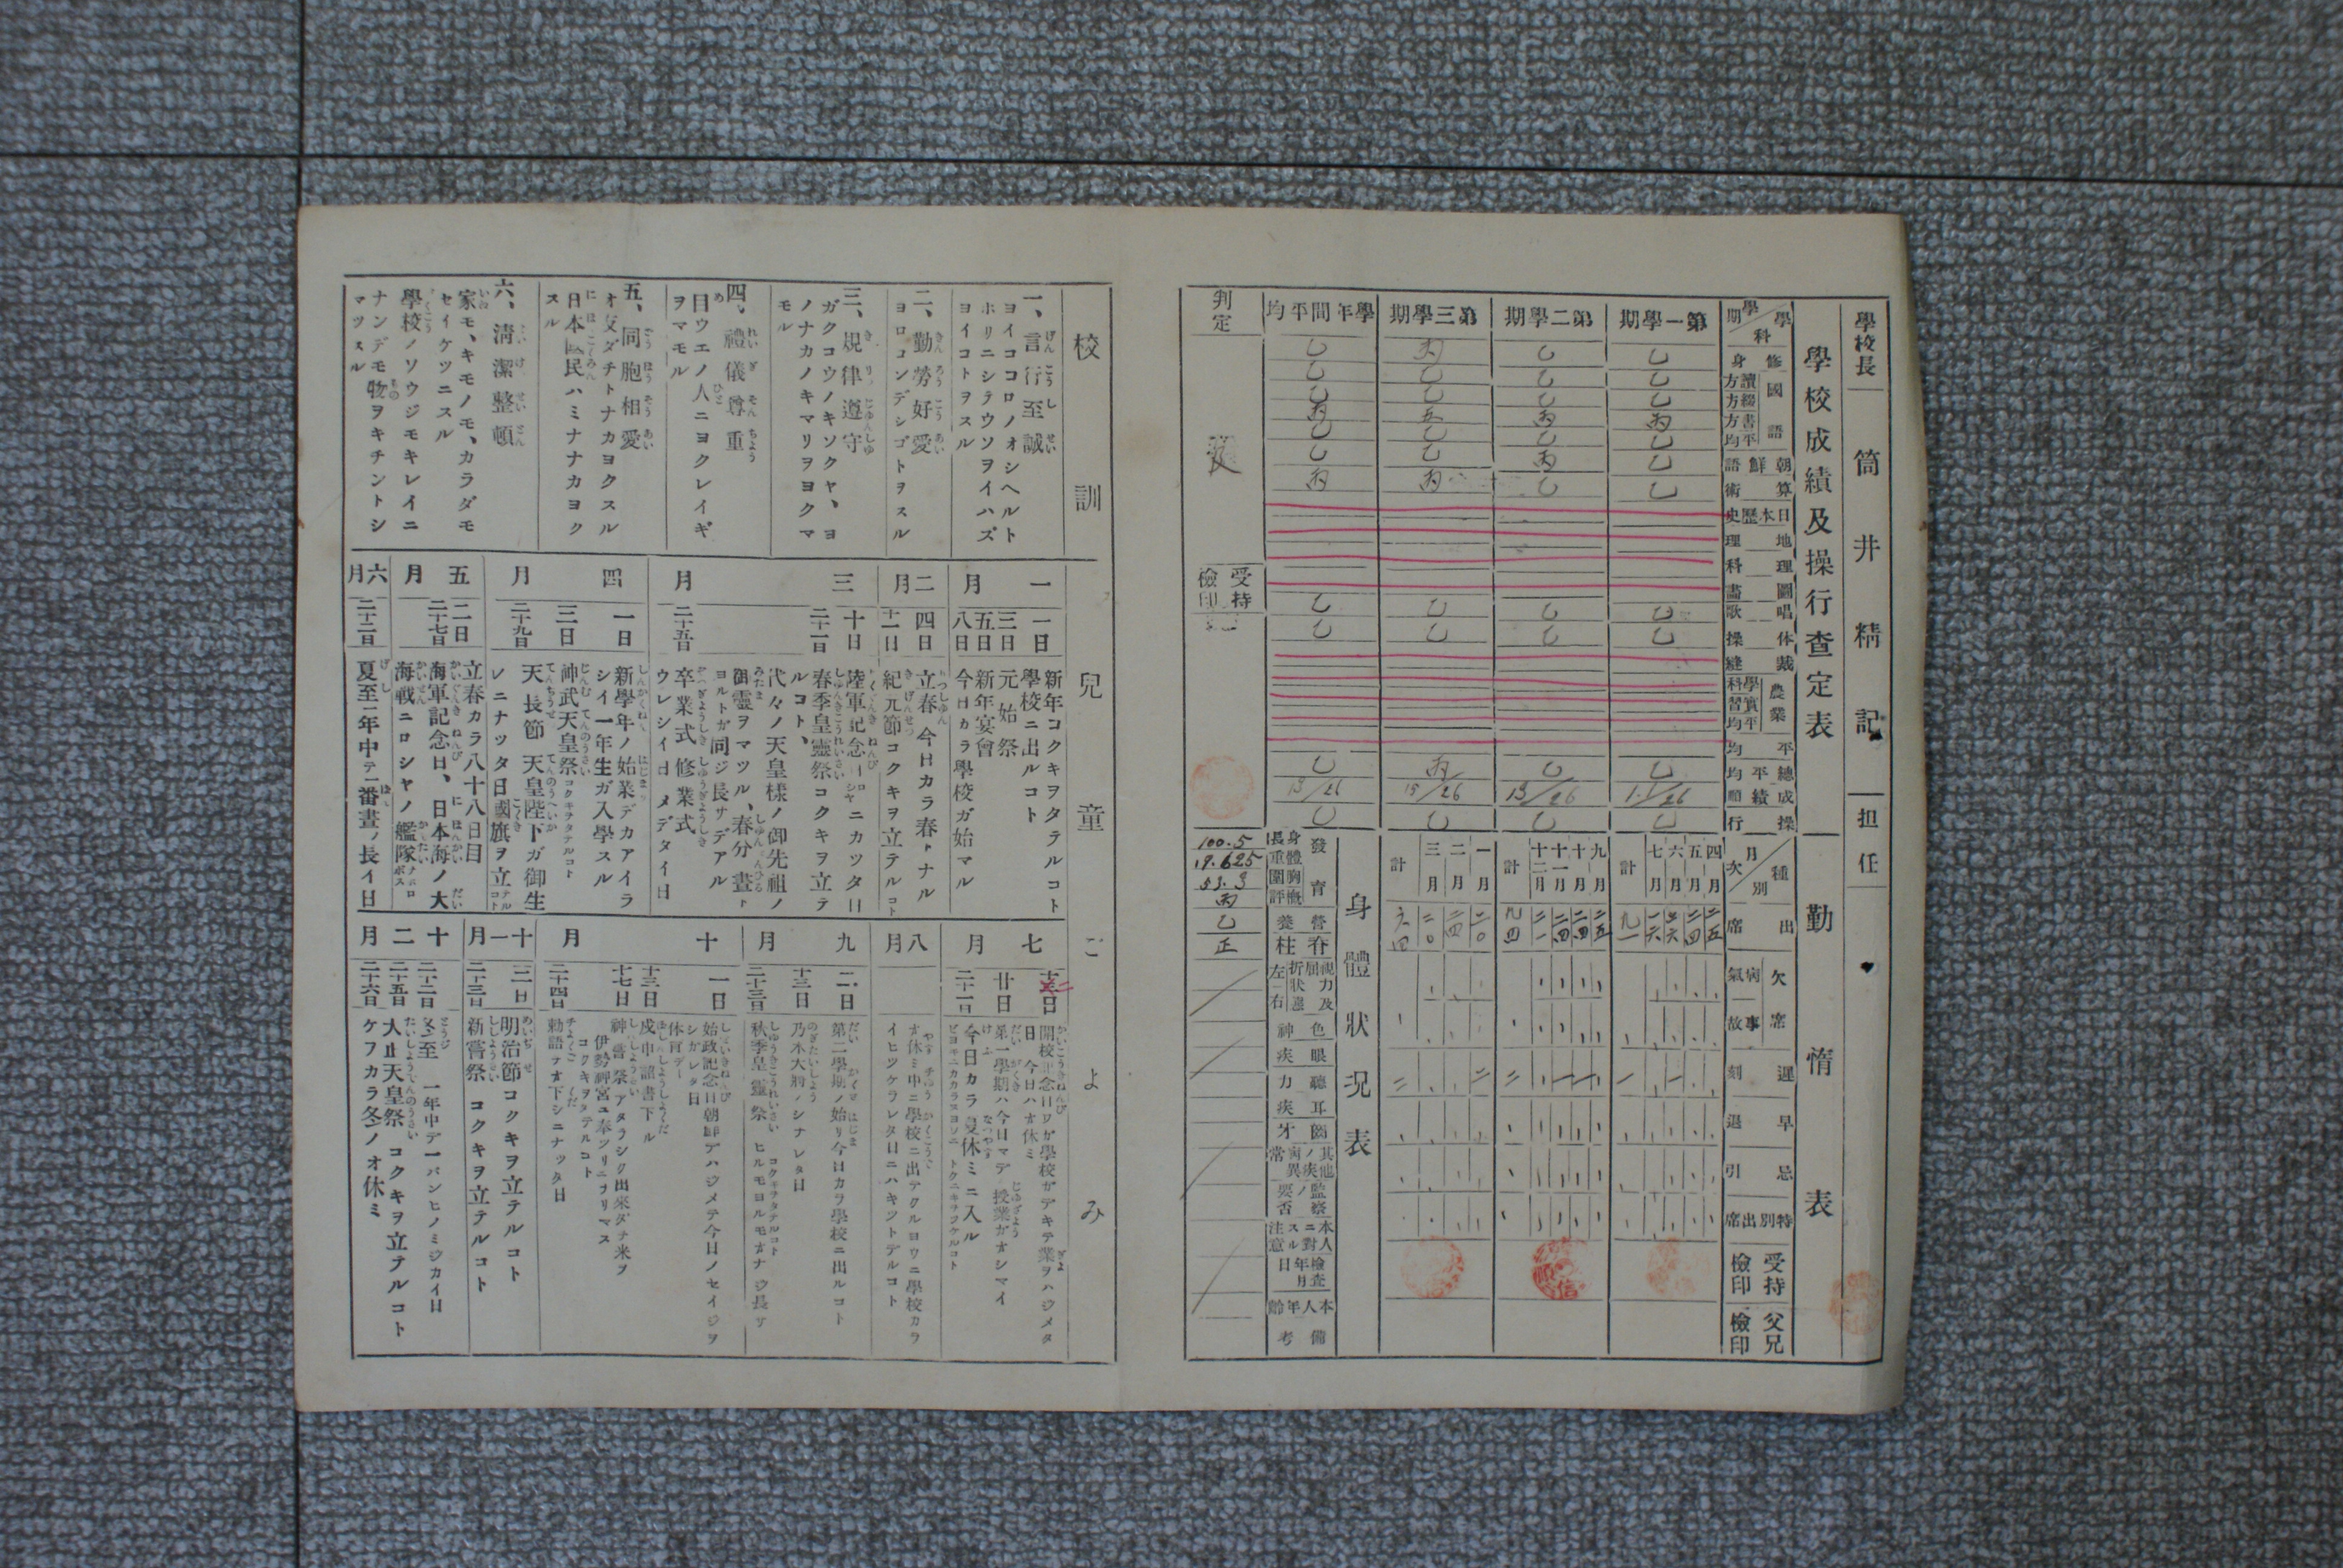 學校長 筒井精記 担任
學校成績及操行査定表
學期 學科
修身
國語
讀方
綴方
書方
平均
朝鮮語
算術
日本歷史
地理
理科
圖畵
唱歌
体操
裁縫
農業
學科
實習
平均
平均
總平均
成績順
操行
第一學期
乙
乙
乙
丙
乙
乙
乙
乙
乙
乙
乙
第二學期
乙
乙
乙
丙
乙
丙
乙
乙
乙
乙
13/26
乙
第三學期
丙
乙
乙
乙
乙
丙
乙
乙
丙
15/26
乙
學年間平均
乙
乙
乙
丙
乙
乙
丙
乙
乙
乙
13/26
乙
判定
受持檢印
勤惰表
月次 種別
出席
欠席
病氣
事故
遲刻
早退
忌引
特別出席
受持檢印
父兄檢印
四月
五月
六月
七月
計
九月
十月
十一月
十二月
計
一月
二月
三月
計
身體狀况表
發育
身長
體重
胸圍
概評
營養
脊柱
視力及屈折狀態
左
右
色神
眼疾
聽力
耳疾
齒牙
其他ノ疾病異常
監察ノ要否
本人ニ對スル注意
檢査年月日
本人年齡
備考
100.5
19.625
53.3
丙
乙
正
校訓
一、言行至誠
ヨイココロノオシヘルト
ホリニシテウソヲイハズ
ヨイコトヲスル
二、勤勞好愛
ヨロコンデシゴトヲスル
三、規律遵守
ガクコウノキソクヤ、ヨ
ノナカノキマリヲヨクマ
モル
四、禮儀尊重
目ウエノ人ニヨクレイギ
ヲマモル
五、同胞相愛
オ友ダチトナカヨクスル
日本國民ハミナナカヨク
スル
六、淸潔整頓
家モ、キモノモ、カラダモ
セイケツニスル
學校ノソウジモキレイニ
ナンデモ物ヲキチントシ
マツスル
兒童ごよみ
一月
一日 新年コクキヲタテルコト
學校ニ出ルコト
三日 元始祭
五日 新年宴會
八日 今日カラ學校ガ始マル
二月
四日 立春 今日カラ春トナル
十一日 紀元節コクキヲ立テルコト
三月
十日 陸軍記念日ロシヤニカツタ日
二十一日 春季皇靈祭コクキヲ立テ
ルコト、
代々ノ天皇樣ノ御先祖ノ
御靈ヲマツル、春分晝ト
ヨルトガ同ジ長サデアル
二十五日 卒業式修業式
ウレシイ日メデタイ日
四月
一日 新學年ノ始業デカアイラ
シイ一年生ガ入學スル
三日 神武天皇祭コクキヲタテルコト
二十九日 天長節 天皇陛下ガ御生
レニナツタ日國旗ヲ立テルコト
五月
二日 立春カラ八十八日目
二十七日 海軍記念日、日本海ノ大
海戰ニロシヤノ艦隊
六月
二十二日 夏至一年中デ一番晝ノ長イ日
七月
開校記念日ワガ學校ガデキテ業ヲハジメタ
日 今日ハオ休ミ
廿日 第一學期ハ今日マデ 授業ガオシマイ
二十一日 今日カラ夏休ミニ入ル
八月
オ休ミ中ニ學校ニ出テクルヨウニ學校カラ
イヒツケラレタ日ニハキツトデルコト
九月
二日 第二學期ノ始リ今日カラ學校ニ出ルコト
十三日 乃木大將ノシナレタ日
二十三日 秋季皇靈祭 コクキヲタテルコト
ヒルモヨルモオナジ長サ
十月
一日 始政記念日朝鮮デハジメテ今日ノセイジヲ
シカレタ日
体育デー
十三日 戊申詔書下ル
十七日 神嘗祭アタラシク出來タ米ヲ
伊勢神宮ニ奉ツリニナリマス
コクキヲタテルコト
二十四日 勅語ヲオ下シニナツタ日
十一月
三日 明治節コクキヲ立テルコト
二十三日 新嘗祭 コクキヲ立テルコト
十二月
二十二日 冬至 一年中デ一バンヒノミジカイ日
二十五日 大正天皇祭 コクキヲ立テルコト
二十六日 ケフカラ冬ノオ休ミ